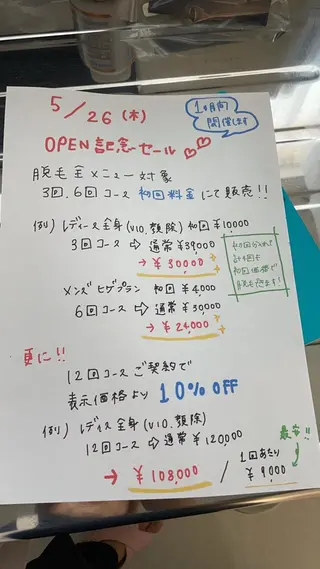 5/26(木)
1ヶ月間
開催します
OPEN記念セール
脱毛全メニュー対象
3回、6回コース 初回料金にて販売!!
例)レディース全身(VIO、顔除)初回¥10,000
3回コース⇨通常¥39,000
→¥30,000
初回分入れて
計4回も
初回価格で
脱毛できます!
メンズヒゲプラン 初回¥4,000
6回コース⇨通常¥30,000
→¥24,000
更に!!
12回コースご契約で
表示価格より 10%OFF
例)レディス全身(VIO、顔除)
12回コース⇨通常¥120,000
最安!!
→¥108,000 / 1回あたり
¥9,000